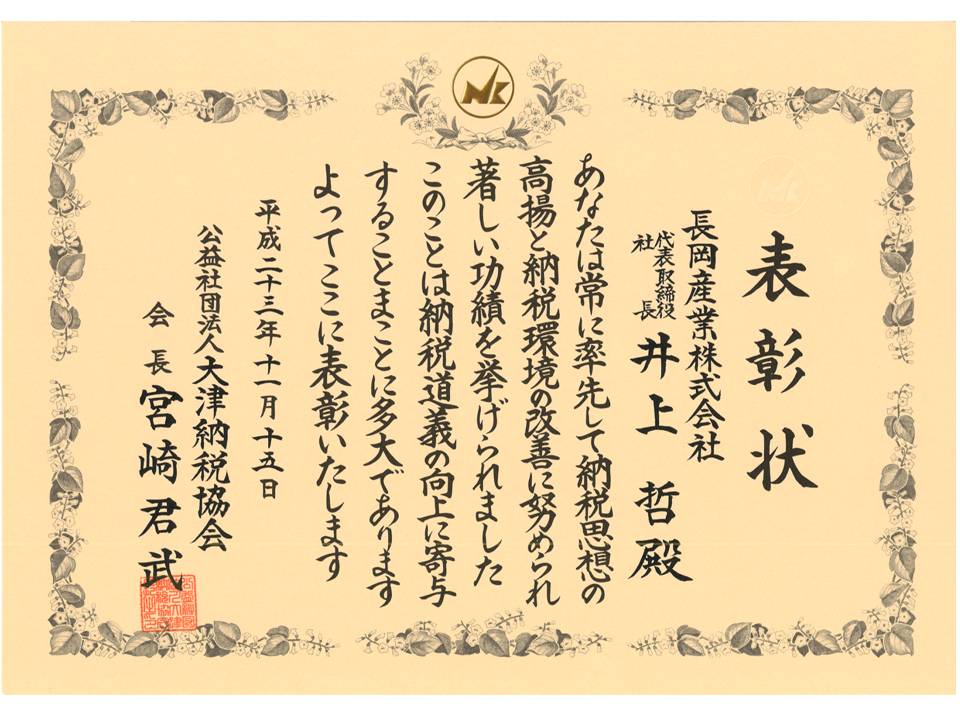 表彰状
長岡産業株式会社
代表取締役
社長
井上 哲 殿
あなたは常に率先して納税思想の
高揚と納税環境の改善に努められ
著しい功績を挙げられました
このことは納税道義の向上に寄与
することまことに多大であります
よってここに表彰いたします
平成二十三年十一月十五日
公益社団法人大津納税協会
会長 宮崎君武